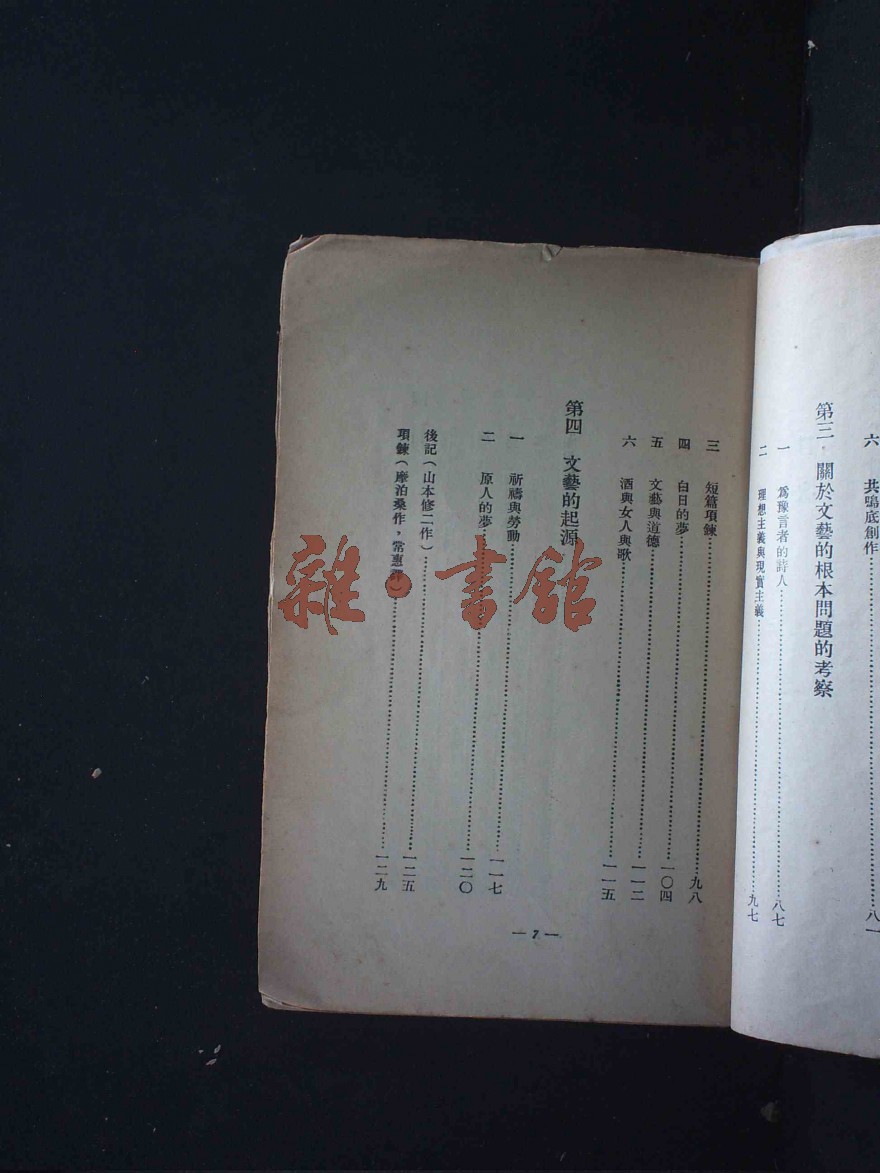 六 共鳴底創作……八一
第三 關於文藝的根本問題的考察
一 爲豫言者的詩人……八七
二 理想主義與現實主義……九七
三 短篇項鍊……九八
四 白日的夢……一〇四
五 文藝與道德……一一二
六 酒與女人與歌……一一五
第四 文藝的起源
一 祈禱與勞動……一一七
二 原人的夢……一二〇
後記(山本修二作)……一二五
項鍊(摩泊桑作,常惠譯)……一二九
— 7 —
雜·書館